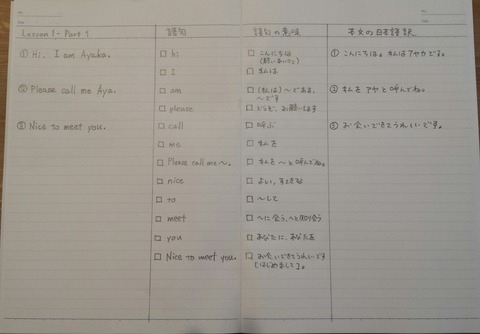 Lesson 1 - Part 1
① Hi. I am Ayaka.
② Please call me Aya.
③ Nice to meet you.
語句
□ hi
□ I
□ am
□ please
□ call
□ me
□ Please call me ～.
□ nice
□ to
□ meet
□ you
□ Nice to meet you.
語句の意味
□ こんにちは
□ 私は
□ (私は)～である、
～です
□ どうぞ、お願いします
□ 呼ぶ
□ 私を
□ 私を ～と呼んでね。
□ よい、すてきな
□ ～して
□ ～に会う、～と知り合う
□ あなたに、あなたを
□ お会いできてうれしいです
[はじめまして]。
英文の日本語訳
① こんにちは。私はアヤカです。
私をアヤと呼んでね。
③ お会いできてうれしいです。